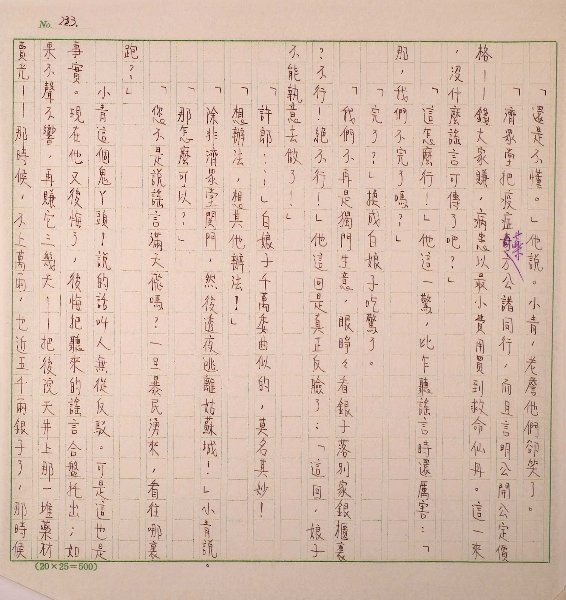 No. 233.
「還是不懂。」他說。小青,老詹他們卻笑了。
「濟眾堂把疫症藥方公諸同行,而且言明公開公定價
格——錢大家賺,病患以最小費用買到救命仙丹。這一來
,沒什麼謠言可傳了吧?」
「這怎麼行!」他這一驚,比乍聽謠言時還厲害:「
那,我們不完了嗎?」
「完了?」換成白娘子吃驚了。
「我們不再是獨門生意,眼睜々看銀子落別家銀櫃裏
?不行!絕不行!」他這回是真正反臉了:「這回,娘子
不能執意去做了!」
「許郎⋯⋯」白娘子千萬委曲似的,莫名其妙!
「想辦法,想其他辦法!」
「除非濟眾堂關門,然後連夜逃離姑蘇城!」小青說。
「那怎麼可以?」
「您不是說謠言滿天飛嗎?一旦暴民湧來,看往哪裏
跑?」
小青這個鬼丫頭?說的話叫人無從反駁。可是這也是
事實。現在他又後悔了,後悔把聽來的謠言合盤托出;如
果不聲不響,再賺它三幾天——把後院天井上那一堆藥材
賣光——那時候,不上萬兩,也近五千兩銀子了,那時候
(20×25=500)